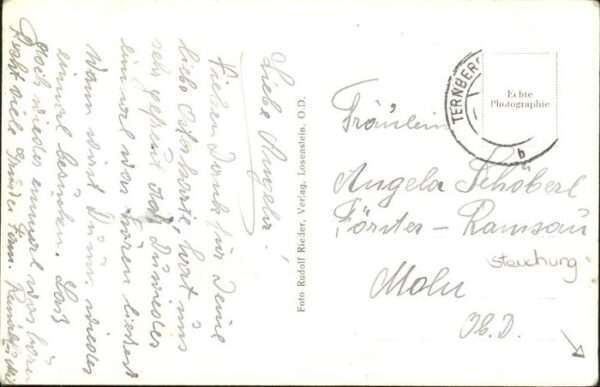 Liebe Angela!
Vielen Dank für Deine
liebe Osterkarte, hat uns
sehr gefreut daß Du wieder
einmal was hören ließest
Wann wirst Du uns wieder
einmal besuchen. Laß
doch wieder einmal was hören
Recht viele Grüße Fam.
Foto Rudolf Rieder, Verlag, Losenstein, O.D.
TERNBERG
b
Echte
Photographie
Fräulein
Angela Schöberl
Förster - Ramsau
Molln
Ob. D.